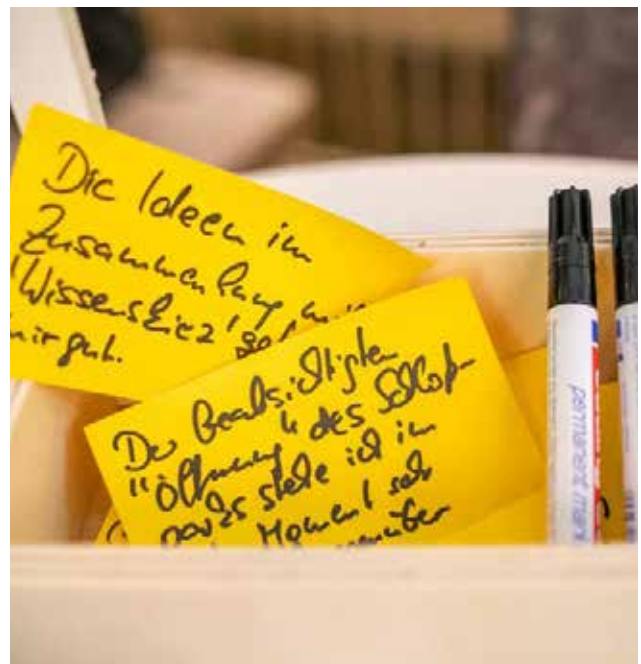 Die Ideen im
Zusammenhang mit
"Wissenskiez" gefallen
mir gut.
Der beabsichtigten
"Öffnung" des Schloß-
parks stehe ich im
Moment sehr
permanent mark